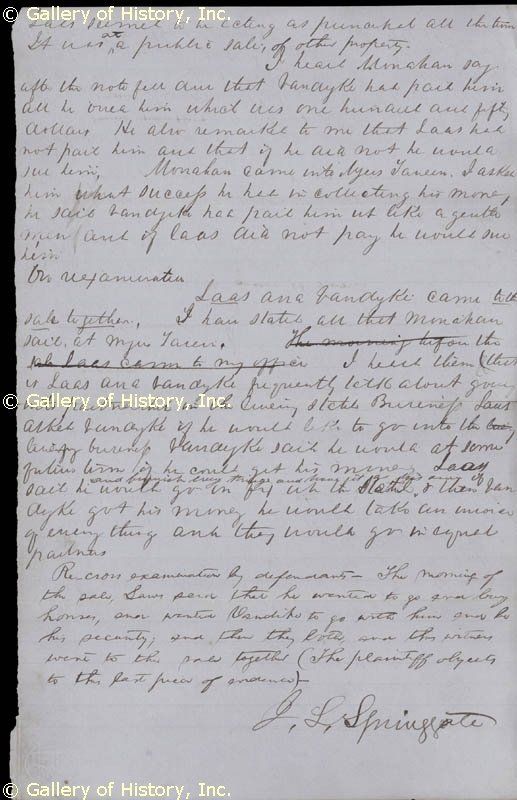 © Gallery of History, Inc.
Laas seemed to be acting as principal all the time
It was at a public sale, of other property.
I heard Monahan say
after the note fell due that Vandyke had paid him
all he owed him which was one hundred and fifty
dollars He also remarked to me that Laas had
not paid him and that if he did not he would
sue him, Monahan came into Myers Tavern. I asked
him what success he had in collecting his money
he said Vandyke had paid him up like a gentle
man and if Laas did not pay he would sue
him
On reexamination
Laas and Vandyke came to the
sale together. I have stated all that Monahan
said, at Myers Tavern. The morning before the
sale Laas came to my office I heard them (that
© Gallery of History, Inc.
is Laas and Vandyke frequently talk about going
into partnership in the livery stable Business Laas
asked Vandyke if he would like to go into the
livery business Vandyke said he would at some
future time if he could get his money Laas
said he would go in and buy the stable & when Van
dyke got his money he would take an invoice
of everything and they would go in equal
partners
Re-cross examination by defendants – The morning of
the sale, Laas said that he wanted to go and buy
horses, and wanted Vandike to go with him and be
his security; and then they both, and this witness
went to the sale together (The plaintiff objects
to this last piece of evidence) –
J. L. Springgate
© Gallery of History, Inc.